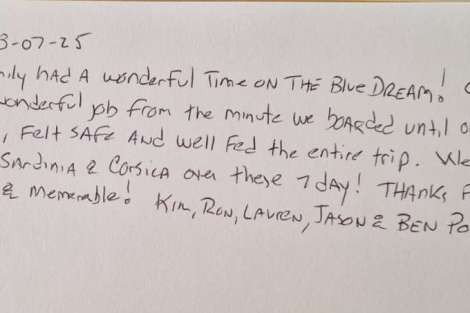 3-07-25
mily had A wonderful Time on THE Blue DREAM!
wonderful job from the minute we boarded until o
, Felt SAFE AND well Fed the entire trip. We
SArdiniA & CorsicA over these 7 day! THANKS F
& Memorable! Kim, Ron, LAuren, JASON & BEN Po